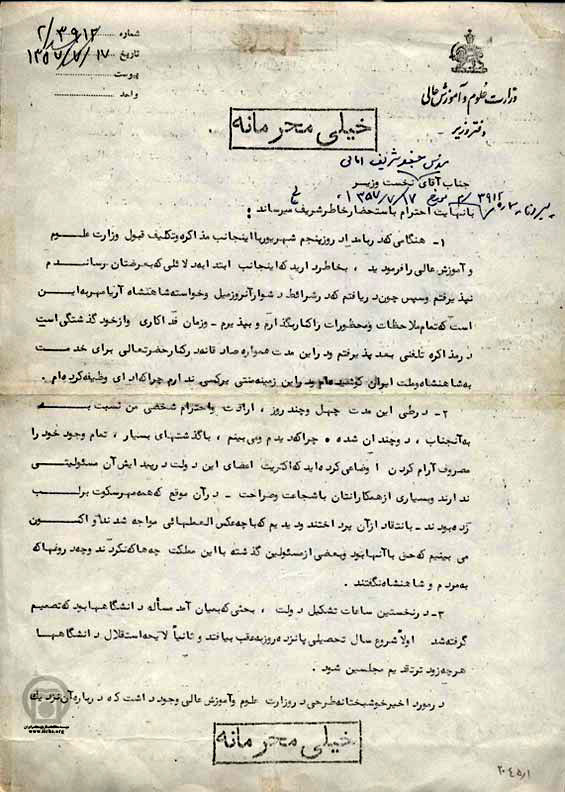 شماره ۲/۳۹۱۲
تاریخ ۱۳۵۷/۷/۱۷
پیوست
واحد
وزارت علوم و آموزش عالی
دفتر وزیر
خیلی محرمانه
مهندس جعفر شریف امامی
جناب آقای نخست وزیر
پیرو نامه شماره ۲/۳۹۱۲ مورخ ۱۳۵۷/۷/۱۷
با نهایت احترام باستحضار خاطر شریف میرساند :
۱- هنگامی که در بامداد روز پنجم شهریور با اینجانب مذاکره و تکلیف قبول وزارت علوم
و آموزش عالی را فرمودید ، بخاطر دارید که اینجانب ابتدا به دلائلی که بعرضتان رساندم
نپذیرفتم و سپس چون دریافتم که در شرائط دشوار آنروز میل و خواسته شاهنشاه آریامهر به این
است که تمام ملاحظات و محظورات را کنار بگذارم و بپذیرم - و زمان فداکاری و از خود گذشتگی است
در مذاکره تلفنی بعد پذیرفتم و در این مدت همواره صادقانه در کنار حضرتعالی برای خدمت
به شاهنشاه و ملت ایران کوشیده ام و در این زمینه منتی بر کسی ندارم چرا که ادای وظیفه کرده ام .
۲- در طی این مدت چهل و چند روز ، ارادت و احترام شخصی من نسبت به
به آنجناب ، دو چندان شده . چرا که دیدم و می بینم ، با گذشتهای بسیار ، تمام وجود خود را
مصروف آرام کردن اوضاعی کرده اید که اکثریت اعضای این دولت در پیدایش آن مسئولیتی
ندارند و بسیاری از همکارانتان با شجاعت و صراحت - در آن موقع که همه مهر سکوت بر لب
زده بودند - بانتقاد از آن پرداختند و دیدیم که با چه عکس العملهائی مواجه شدند و اکنون
می بینیم که حق با آنها بود و بعضی از مسئولین گذشته با این مملکت چه ها که نکردند و چه دروغها که
به مردم و شاهنشاه نگفتند .
۳- در نخستین ساعات تشکیل دولت ، بحثی که بمیان آمد مسأله دانشگاهها بود که تصمیم
گرفته شد اولاً شروع سال تحصیلی پانزده روز به عقب بیافتد و ثانیاً لایحه استقلال دانشگاهها
هر چه زودتر تقدیم مجلسین شود .
در مورد اخیر خوشبختانه طرحی در وزارت علوم و آموزش عالی وجود داشت که درباره آن نزدیک
خیلی محرمانه
www.iichs.org
۲۰۴۵/۱